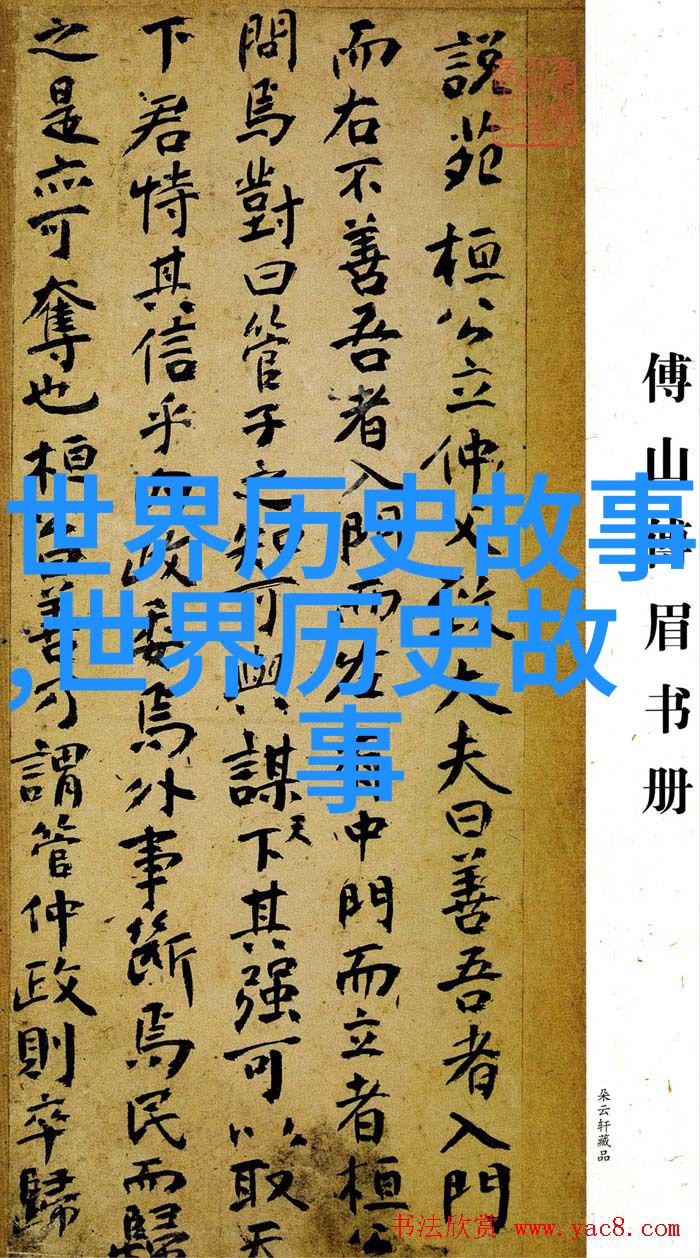 傅山傅眉书册
朵云轩藏品
説苑 桓公立仲父致大夫曰善吾者入門
而右不善吾者入門而左有中門而立者桓公
問焉對曰管子之知可與謀天下其强可以取天
下君恃其信乎内政委焉外事斷焉民而歸
之是亦可奪也桓公善乃謂管仲政則卒歸
世界历史故事
,世界历史故
事
书法欣赏 www.yac8.com